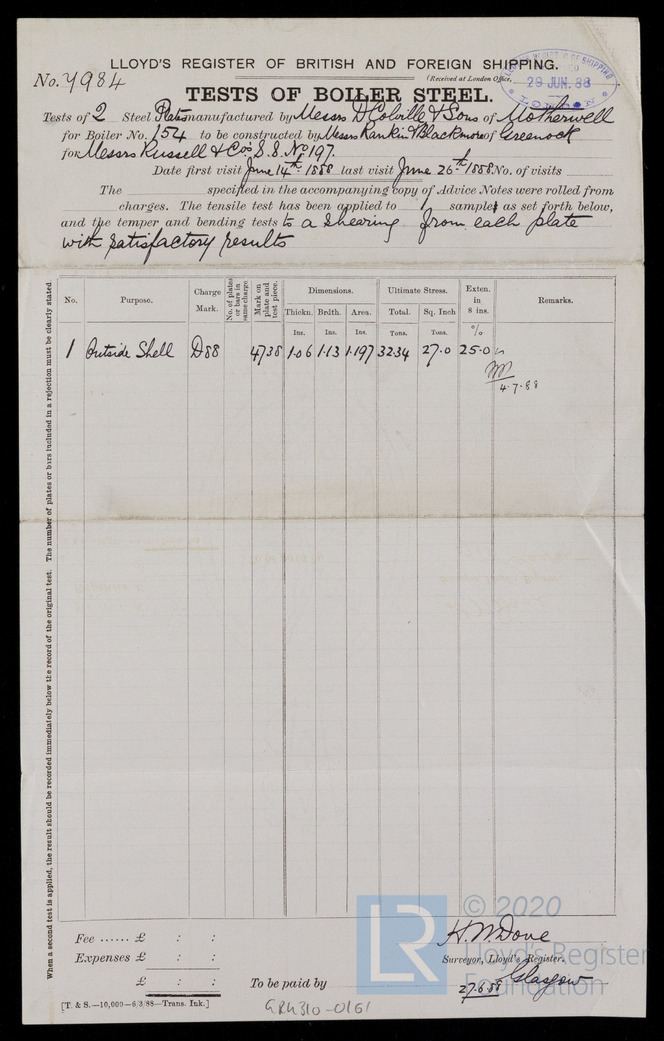 LLOYD'S REGISTER OF BRITISH AND FOREIGN SHIPPING.
No. 7984
(Received at London Office,
29 JUN. 88
TESTS OF BOILER STEEL.
Tests of 2 Steel Plates manufactured by Messrs D Colville & Sons of Motherwell
for Boiler No. 154 to be constructed by Messrs Rankin & Blackmore of Greenock
for Messrs Russell & Co's S.S. No 197.
Date first visit June 14th 1888 last visit June 26th 1888 No. of visits
The specified in the accompanying copy of Advice Notes were rolled from
charges. The tensile test has been applied to 1 samples as set forth below,
and the temper and bending tests to a shearing from each plate
with satisfactory results
No. Purpose. Charge Mark. No. of plates or bars in same charge Mark on plate and test piece. Dimensions. Ultimate Stress. Exten. in 8 ins. Remarks.
Thickn. Brdth. Area. Total. Sq. Inch
Ins. Ins. Ins. Tons. Tons. %
1 Outside Shell D88 4738 1.06 1.13 1.197 32.34 27.0 25.0
4.7.88
When a second test is applied, the result should be recorded immediately below the record of the original test. The number of plates or bars included in a rejection must be clearly stated
Fee ...... £ : :
Expenses £ : :
£ : :
To be paid by
H. W. Dove
Surveyor, Lloyd's Register.
27.6.88 Glasgow
[T. & S.—10,000—6/3/88—Trans. Ink.]
GRK310-0161
LR
© 2020
Lloyd's Register
Foundation